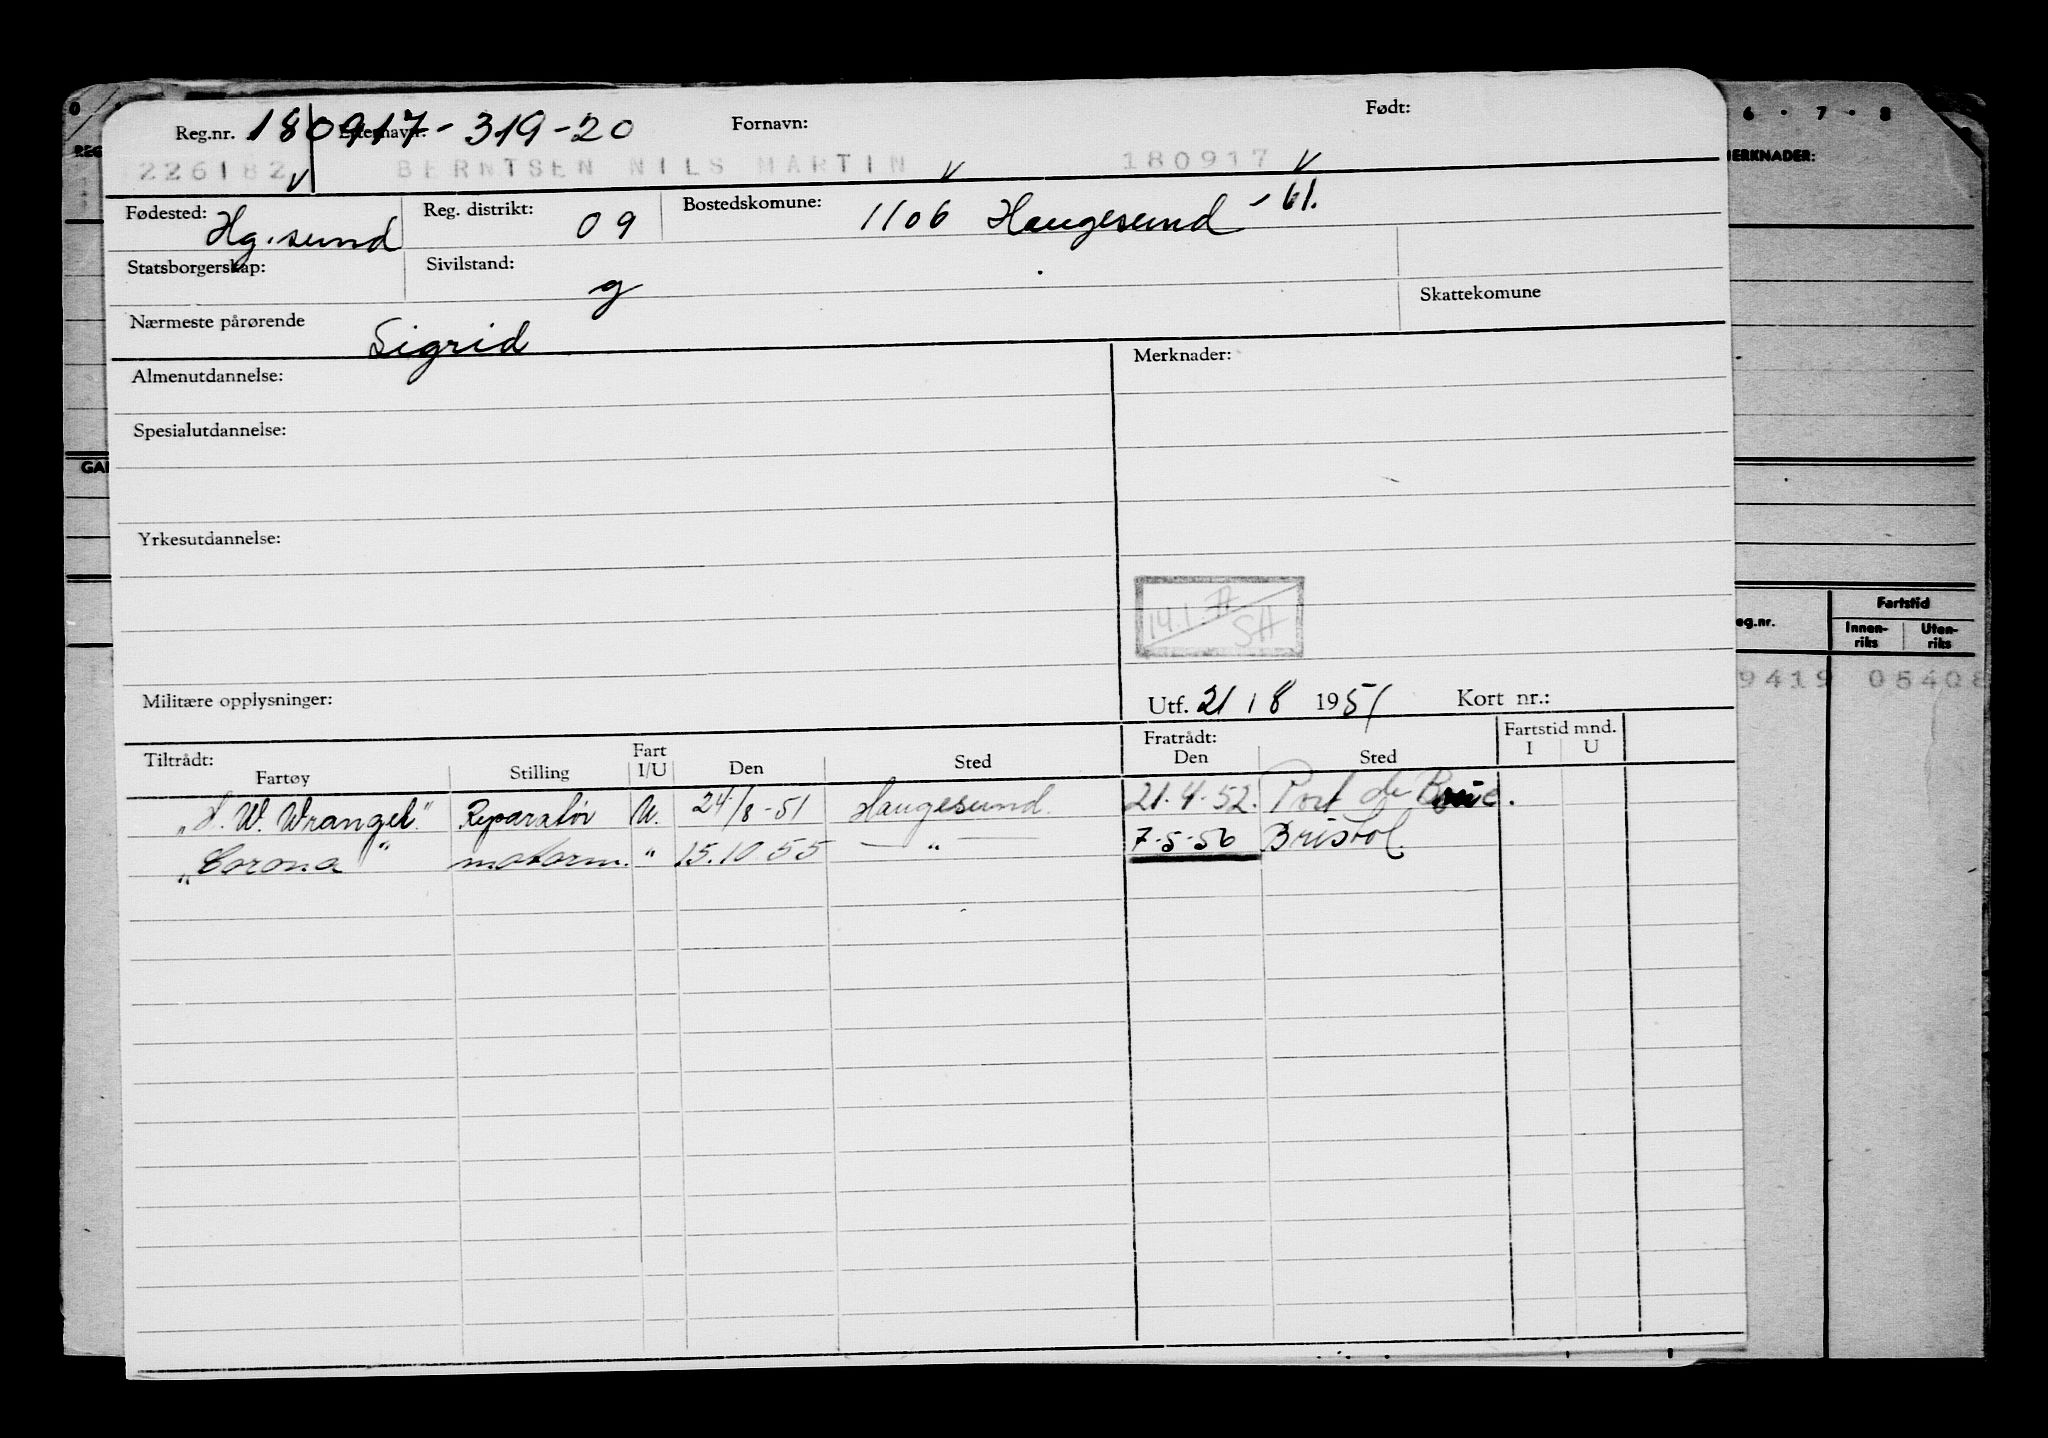 Reg.nr. 180917-319-20 Etternavn: Fornavn: Født:
226182 v BERNTSEN NILS MARTIN v 180917 v
Fødested: Hg.sund Reg. distrikt: 09 Bostedskomune: 1106 Haugesund -61.
Statsborgerskap: Sivilstand: g
Skattekomune
Nærmeste pårørende Sigrid
Almenutdannelse: Merknader:
Spesialutdannelse:
Yrkesutdannelse:
14.1 SH
Militære opplysninger: Utf. 21/8 1951 Kort nr.:
Tiltrådt: Fratrådt: Fartstid mnd.
Fartøy Stilling Fart I/U Den Sted Den Sted I U
"H. W. Wrangel" Reparatör U. 24/8-51 Haugesund. 21.4.52. Port de Bouc.
"Corona" motorm. " 15.10.55 — " — 7-5-56 Bristol.
6 · 7 · 8
MERKNADER:
REG
GAR
eg.nr. Fartstid
Innen-riks Uten-riks
9419 05408